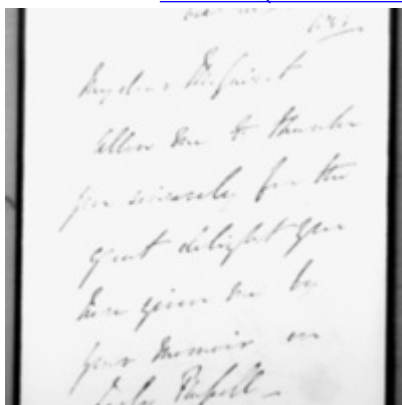 My dear
allow me to thank
you sincerely for the
great delight you
have given me by
your Memoir on
Russell